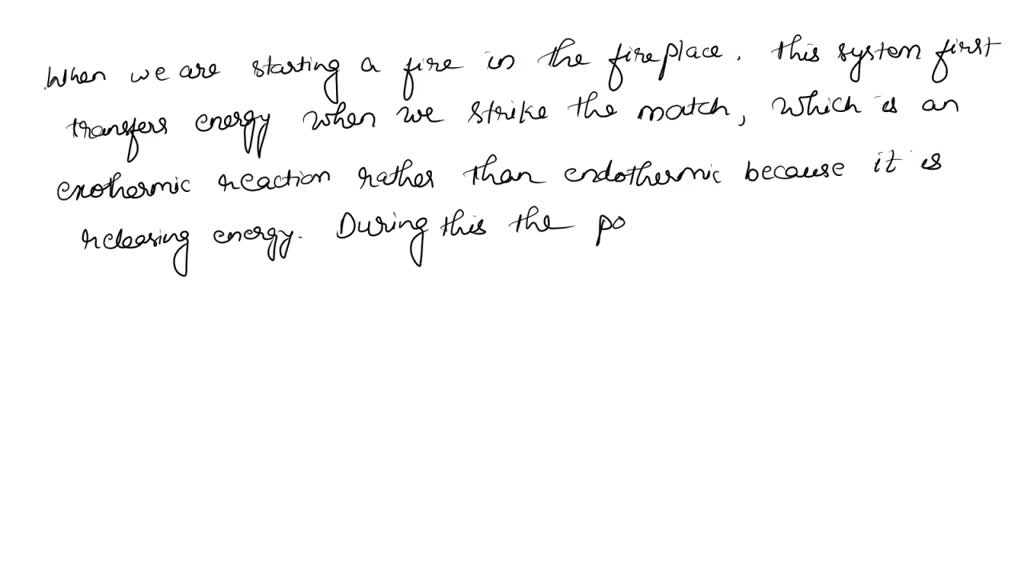 When we are starting a fire in the fireplace. This system first
transfers energy when we strike the match, which is an
exothermic reaction rather than endothermic because it is
releasing energy. During this the po